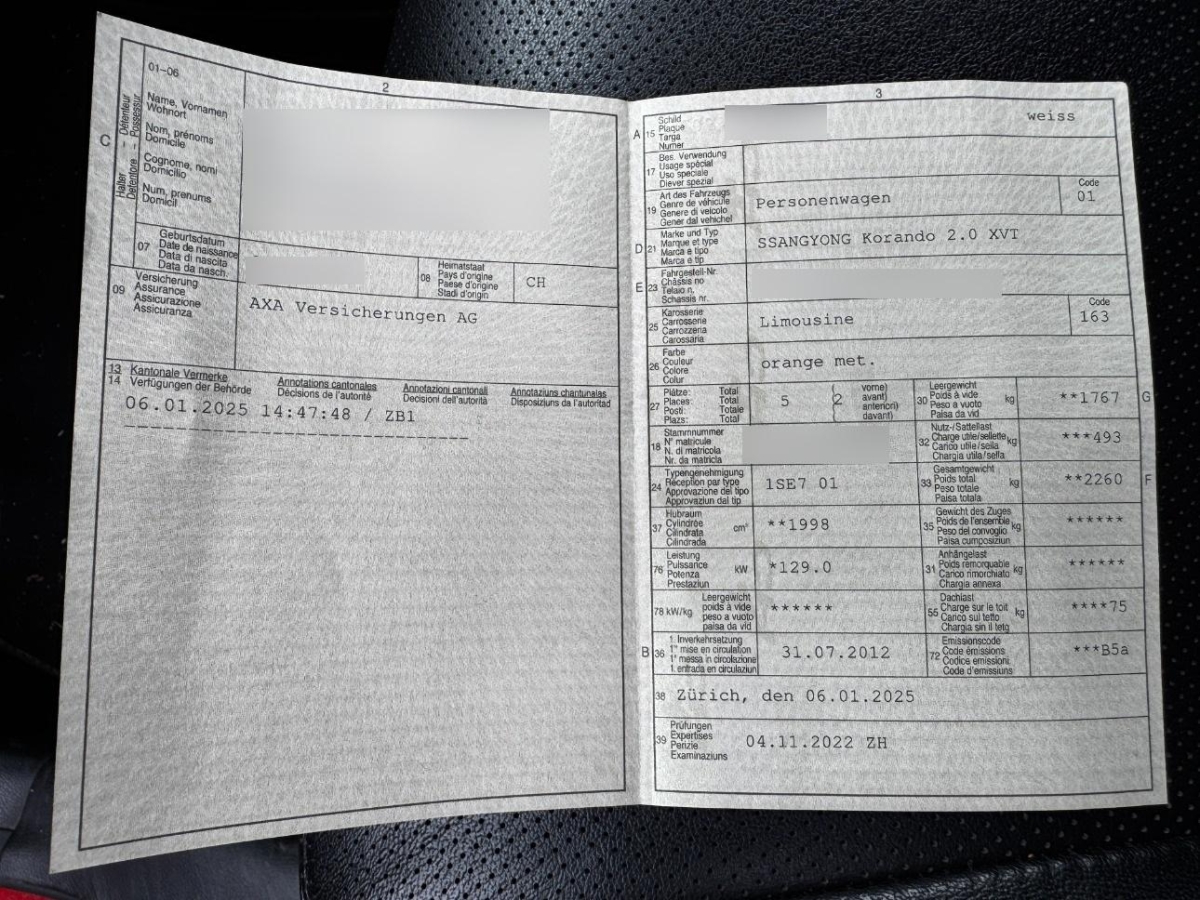 2
01-06
C
Halter - Détenteur
Detentore - Possessur
Name, Vornamen
Wohnort
Nom, prénoms
Domicile
Cognome, nomi
Domicilio
Num, prenums
Domicil
07
Geburtsdatum
Date de naissance
Data di nascita
Data da nasch.
08
Heimatstaat
Pays d'origine
Paese d'origine
Stadi d'origin
CH
09
Versicherung
Assurance
Assicurazione
Assicuranza
AXA Versicherungen AG
13 Kantonale Vermerke
Annotations cantonales
Annotazioni cantonali
Annotaziuns chantunalas
14 Verfügungen der Behörde
Décisions de l'autorité
Decisioni dell'autorità
Disposiziuns da l'autoritad
06.01.2025 14:47:48 / ZB1
3
A 15
Schild
Plaque
Targa
Numer
weiss
17
Bes. Verwendung
Usage spécial
Uso speciale
Diever spezial
19
Art des Fahrzeugs
Genre de véhicule
Genere di veicolo
Gener dal vehichel
Personenwagen
Code
01
D 21
Marke und Typ
Marque et type
Marca e tipo
Marca e tip
SSANGYONG Korando 2.0 XVT
E 23
Fahrgestell-Nr.
Châssis no
Telaio n.
Schassis nr.
25
Karosserie
Carrosserie
Carrozzeria
Carossaria
Limousine
Code
163
26
Farbe
Couleur
Colore
Colur
orange met.
27
Plätze: Total
Places: Total
Posti: Totale
Plazs: Total
5
(2
vorne)
avant)
anteriori)
davant)
30
Leergewicht
Poids à vide
Peso a vuoto
Paisa da vid
kg
**1767
G
18
Stammnummer
N° matricule
N. di matricola
Nr. da matricla
32
Nutz-/Sattellast
Charge utile/sellette
Carico utile/sella
Chargia utila/sella
kg
***493
24
Typengenehmigung
Réception par type
Approvazione del tipo
Approvaziun dal tip
1SE7 01
33
Gesamtgewicht
Poids total
Peso totale
Paisa totala
kg
**2260
F
37
Hubraum
Cylindrée
Cilindrata
Cilindrada
cm³
**1998
35
Gewicht des Zuges
Poids de l'ensemble
Peso del convoglio
Paisa cumposiziun
kg
******
76
Leistung
Puissance
Potenza
Prestaziun
kW
*129.0
31
Anhängelast
Poids remorquable
Carico rimorchiato
Chargia annexa
kg
******
78 kW/kg
Leergewicht
poids à vide
peso a vuoto
paisa da vid
******
55
Dachlast
Charge sur le toit
Carico sul tetto
Chargia sin il tetg
kg
****75
B 36
1. Inverkehrsetzung
1re mise en circulation
1a messa in circolazione
1. entrada en circulaziun
31.07.2012
72
Emissionscode
Code émissions
Codice emissioni
Code d'emissiuns
***B5a
38 Zürich, den 06.01.2025
39
Prüfungen
Expertises
Perizie
Examinaziuns
04.11.2022 ZH